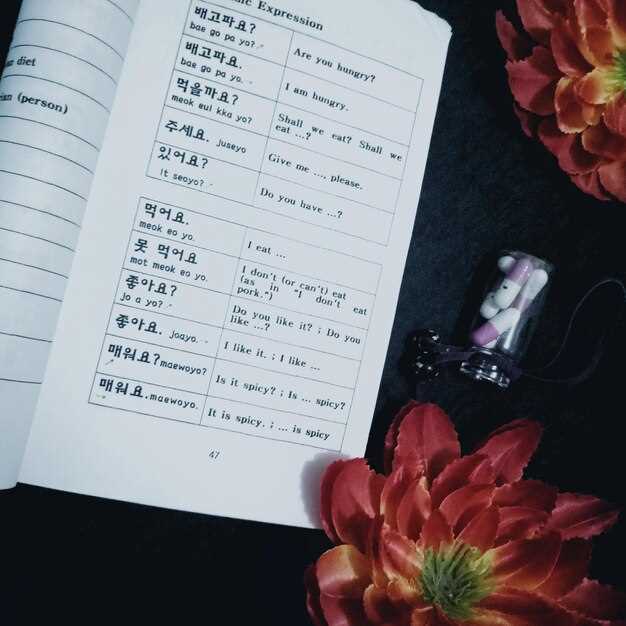 Expression
diet
(person)
배고파요?
bae go pa yo?
Are you hungry?
배고파요.
bae go pa yo.
I am hungry.
먹을까요?
meok eul kka yo?
Shall we eat? Shall we
eat ...?
주세요. juseyo
Give me ..., please.
있어요?
it seoyo?
Do you have ...?
먹어요.
meok eo yo.
I eat ...
못 먹어요
mot meok eo yo.
I don't (or can't) eat
(as in "I don't eat
pork.")
좋아요?
jo a yo?
Do you like it? ; Do you
like ...?
좋아요. joayo.
I like it. ; I like ...
매워요? maewoyo?
Is it spicy? ; Is ... spicy?
매워요. maewoyo.
It is spicy. ; ... is spicy
47